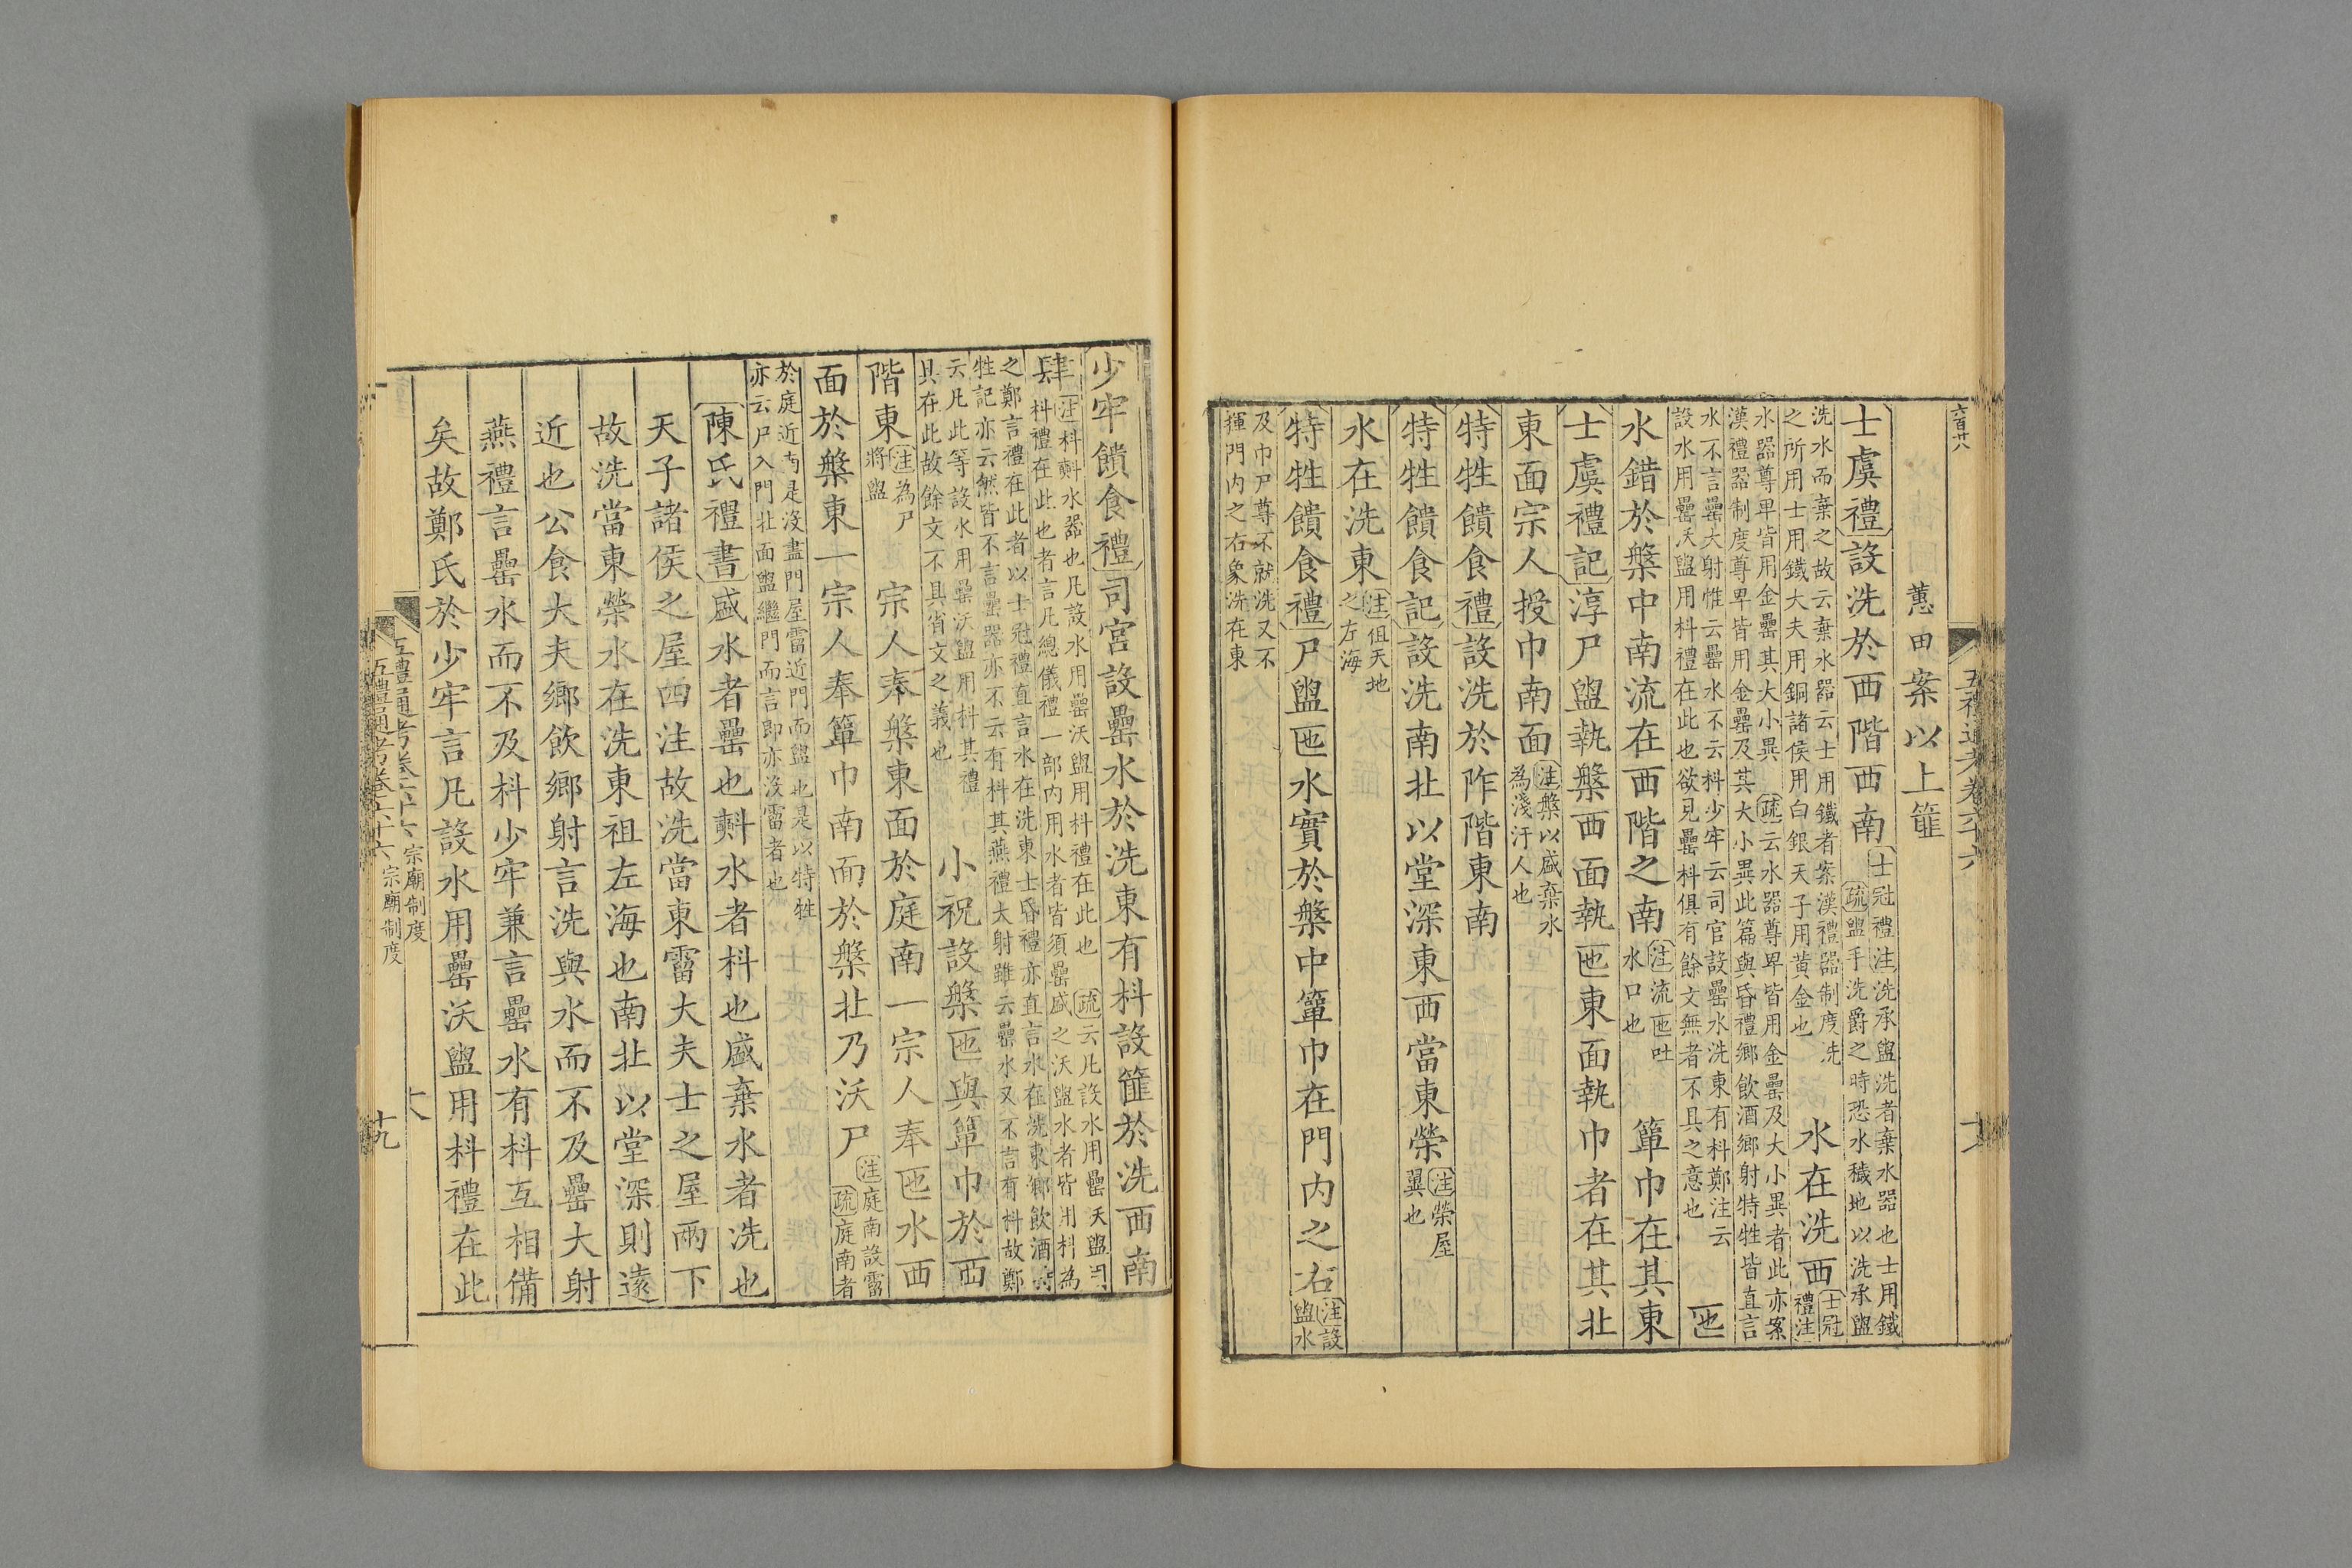 六百廿八
五禮通考卷六十六
蕙田案以上篚
士虞禮設洗於西階西南士冠禮注洗承盥洗者棄水器也士用鐵
疏盥手洗爵之時恐水穢地以洗承盥
洗水而棄之故云棄水器云士用鐵者案漢禮器制度洗
之所用士用鐵大夫用銅諸侯用白銀天子用黃金也
水在洗西士冠
禮注
水器尊卑皆用金罍其大小異疏云水器尊卑皆用金罍及大小異者此亦案
漢禮器制度尊卑皆用金罍及其大小異此篇與昏禮鄉飲酒鄉射特牲皆直言
水不言罍大射惟云罍水不云枓少牢云司宮設罍水洗東有枓鄭注云
設水用罍沃盥用枓禮在此也欲見罍枓俱有餘文無者不具之意也
匜
水錯於槃中南流在西階之南注流匜吐
水口也
簞巾在其東
士虞禮記淳尸盥執槃西面執匜東面執巾者在其北
東面宗人授巾南面注槃以盛棄水
為淺汙人也
特牲饋食禮設洗於阼階東南
特牲饋食記設洗南北以堂深東西當東榮注榮屋
翼也
水在洗東注俎天地
之左海
特牲饋食禮尸盥匜水實於槃中簞巾在門內之右注設
盥水
及巾尸尊不就洗又不
揮門內之右象洗在東
少牢饋食禮司宮設罍水於洗東有枓設篚於洗西南
肆注枓㪺水器也凡設水用罍沃盥用枓禮在此也疏云凡設水用罍沃盥用
枓禮在此也者言凡總儀禮一部內用水者皆須罍盛之沃盥水者皆用枓為
之鄭言禮在此者以士冠禮直言水在洗東士昏禮亦直言水在洗東鄉飲酒
牲記亦云然皆不言罍器亦不云有枓其燕禮大射雖云罍水又不言有枓故鄭
云凡此等設水用罍沃盥用枓其禮
具在此故餘文不具省文之義也
小祝設槃匜與簞巾於西
階東注為尸
將盥
宗人奉槃東面於庭南一宗人奉匜水西
面於槃東一宗人奉簞巾南面於槃北乃沃尸注庭南設霤
疏庭南者
於庭近南是沒盡門屋霤近門而盥也是以特牲
亦云尸入門北面盥繼門而言即亦沒霤者也
陳氏禮書盛水者罍也㪺水者枓也盛棄水者洗也
天子諸侯之屋四注故洗當東霤大夫士之屋兩下
故洗當東榮水在洗東祖左海也南北以堂深則遠
近也公食大夫鄉飲鄉射言洗與水而不及罍大射
燕禮言罍水而不及枓少牢兼言罍水有枓互相備
矣故鄭氏於少牢言凡設水用罍沃盥用枓禮在此
五禮通考卷六十六 宗廟制度
五禮通考卷六十六 宗廟制度
十九